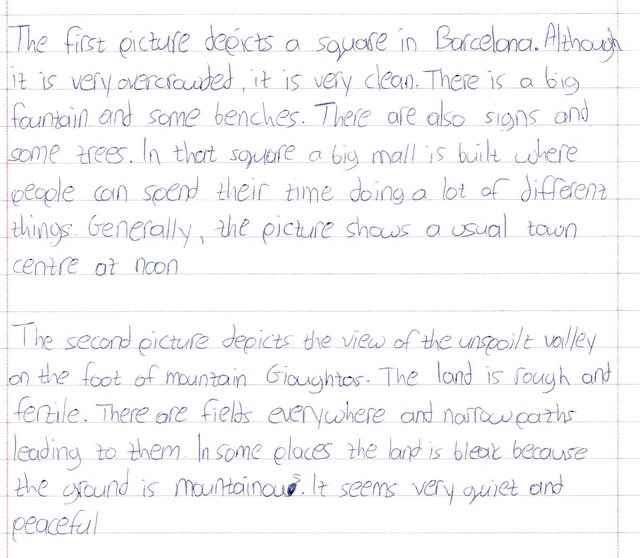 The first picture depicts a square in Barcelona. Although
it is very overcrowded, it is very clean. There is a big
fountain and some benches. There are also signs and
some trees. In that square a big mall is built where
people can spend their time doing a lot of different
things. Generally, the picture shows a usual town
centre at noon
The second picture depicts the view of the unspoilt valley
on the foot of mountain Gioughtas. The land is rough and
fertile. There are fields everywhere and narrow paths
leading to them. In some places the land is bleak because
the ground is mountainous. It seems very quiet and
peaceful